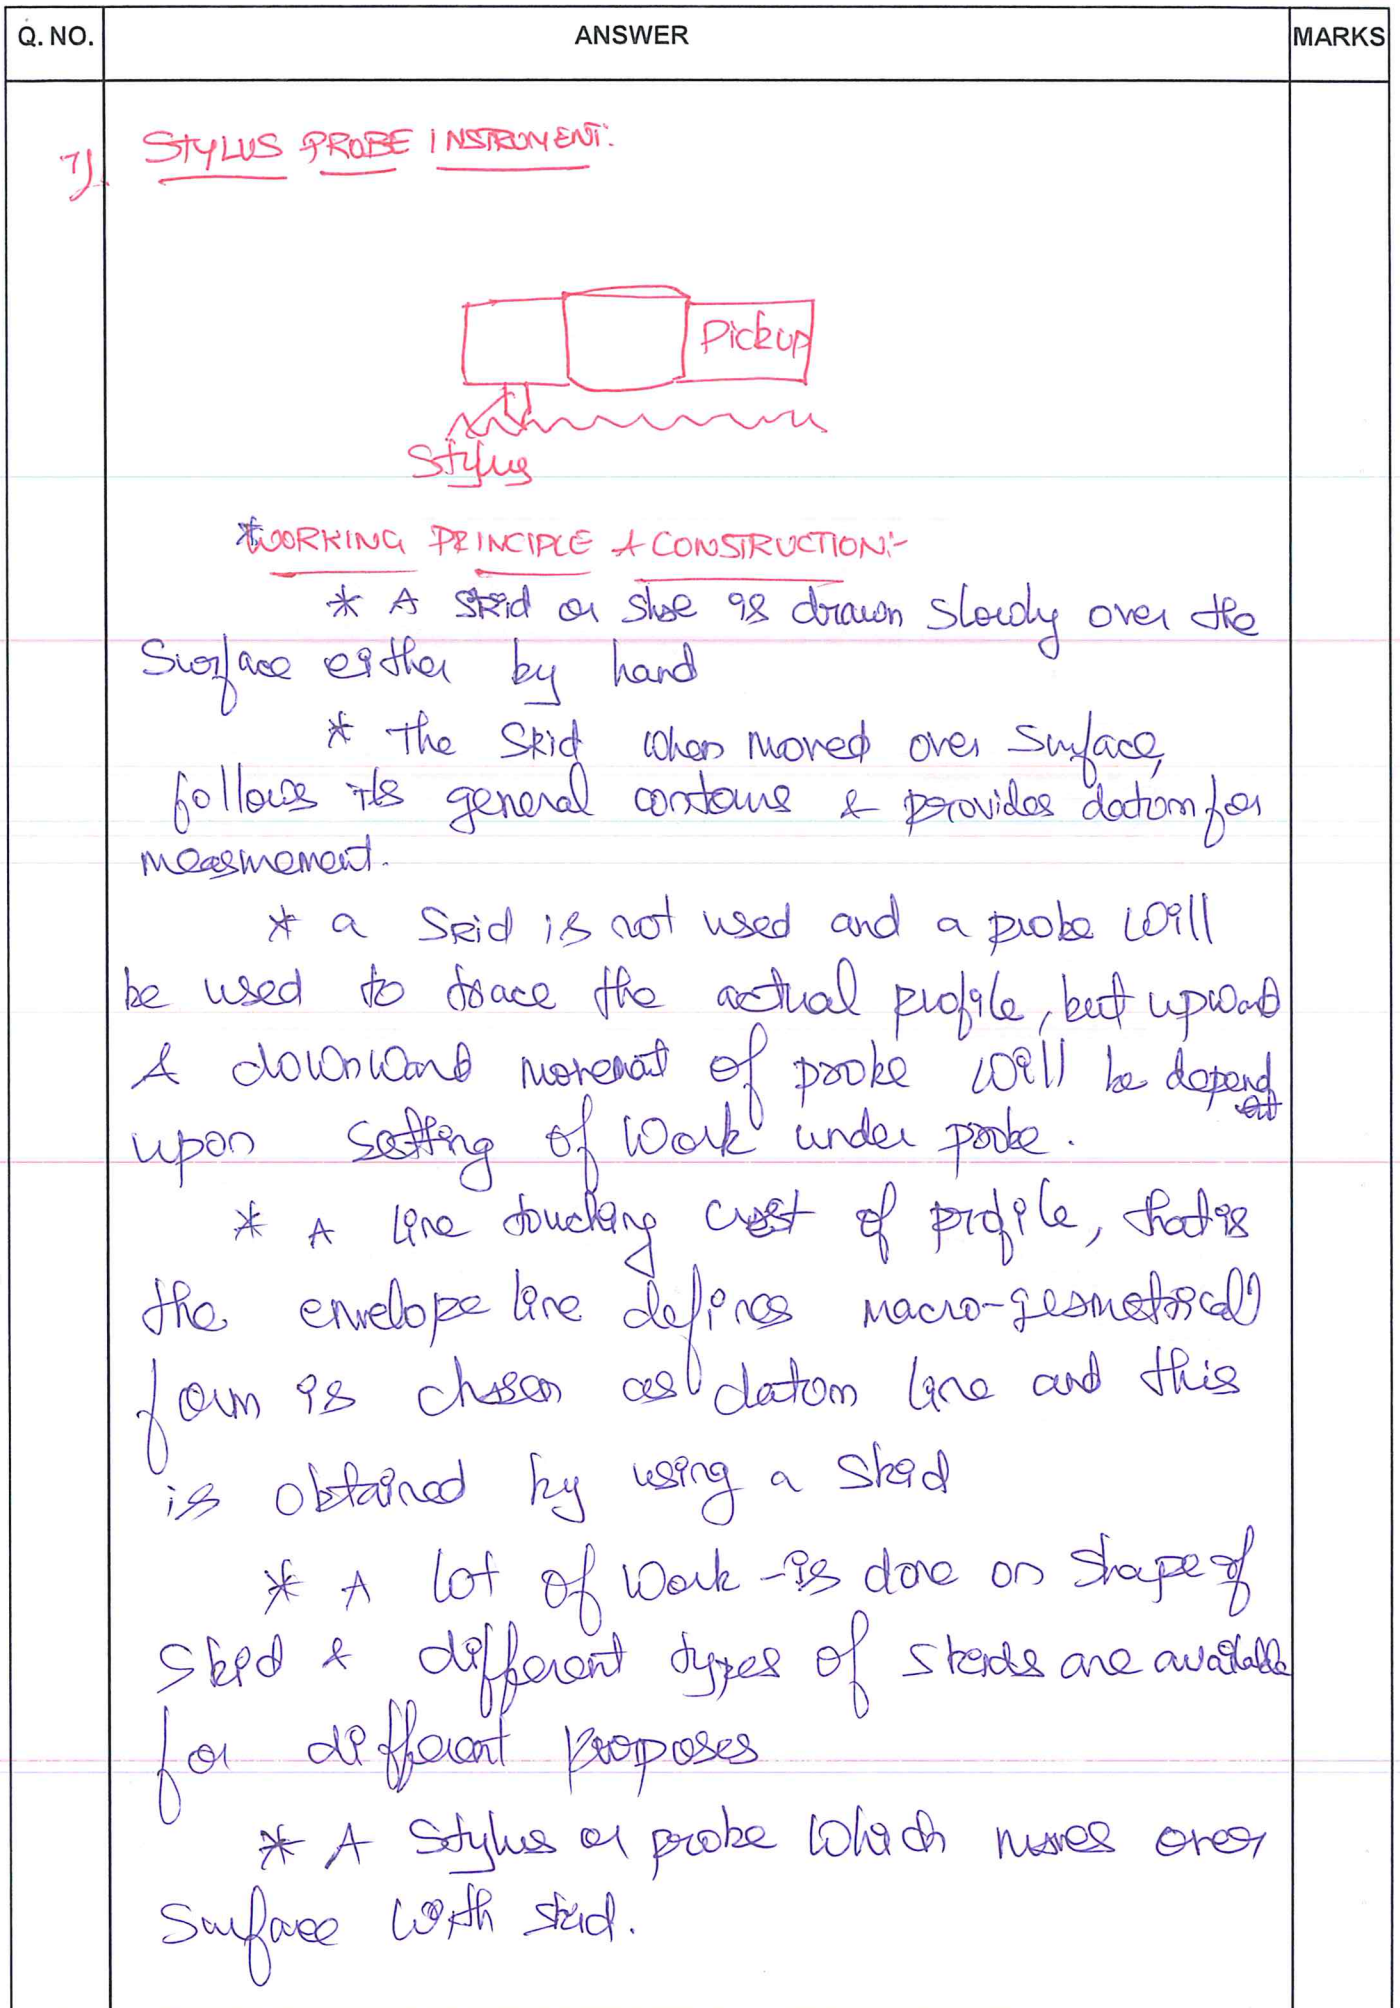 Q. NO. ANSWER MARKS
7) STYLUS PROBE INSTRUMENT:
Pickup
Stylus
*WORKING PRINCIPLE & CONSTRUCTION:-
* A skid or shoe is drawn slowly over the
Surface either by hand
* The skid when moved over surface,
follows its general contours & provides datom for
measurement.
* a skid is not used and a probe will
be used to trace the actual profile, but upward
& downward movement of probe will be depend
upon setting of work under probe.
* A line touching crest of profile, that is
the envelope line defines macro-geometrical
form is chosen as datom line and this
is obtained by using a skid
* A lot of work is done on shape of
skid & different types of skids are available
for different proposes
* A stylus or probe which moves over
surface with skid.